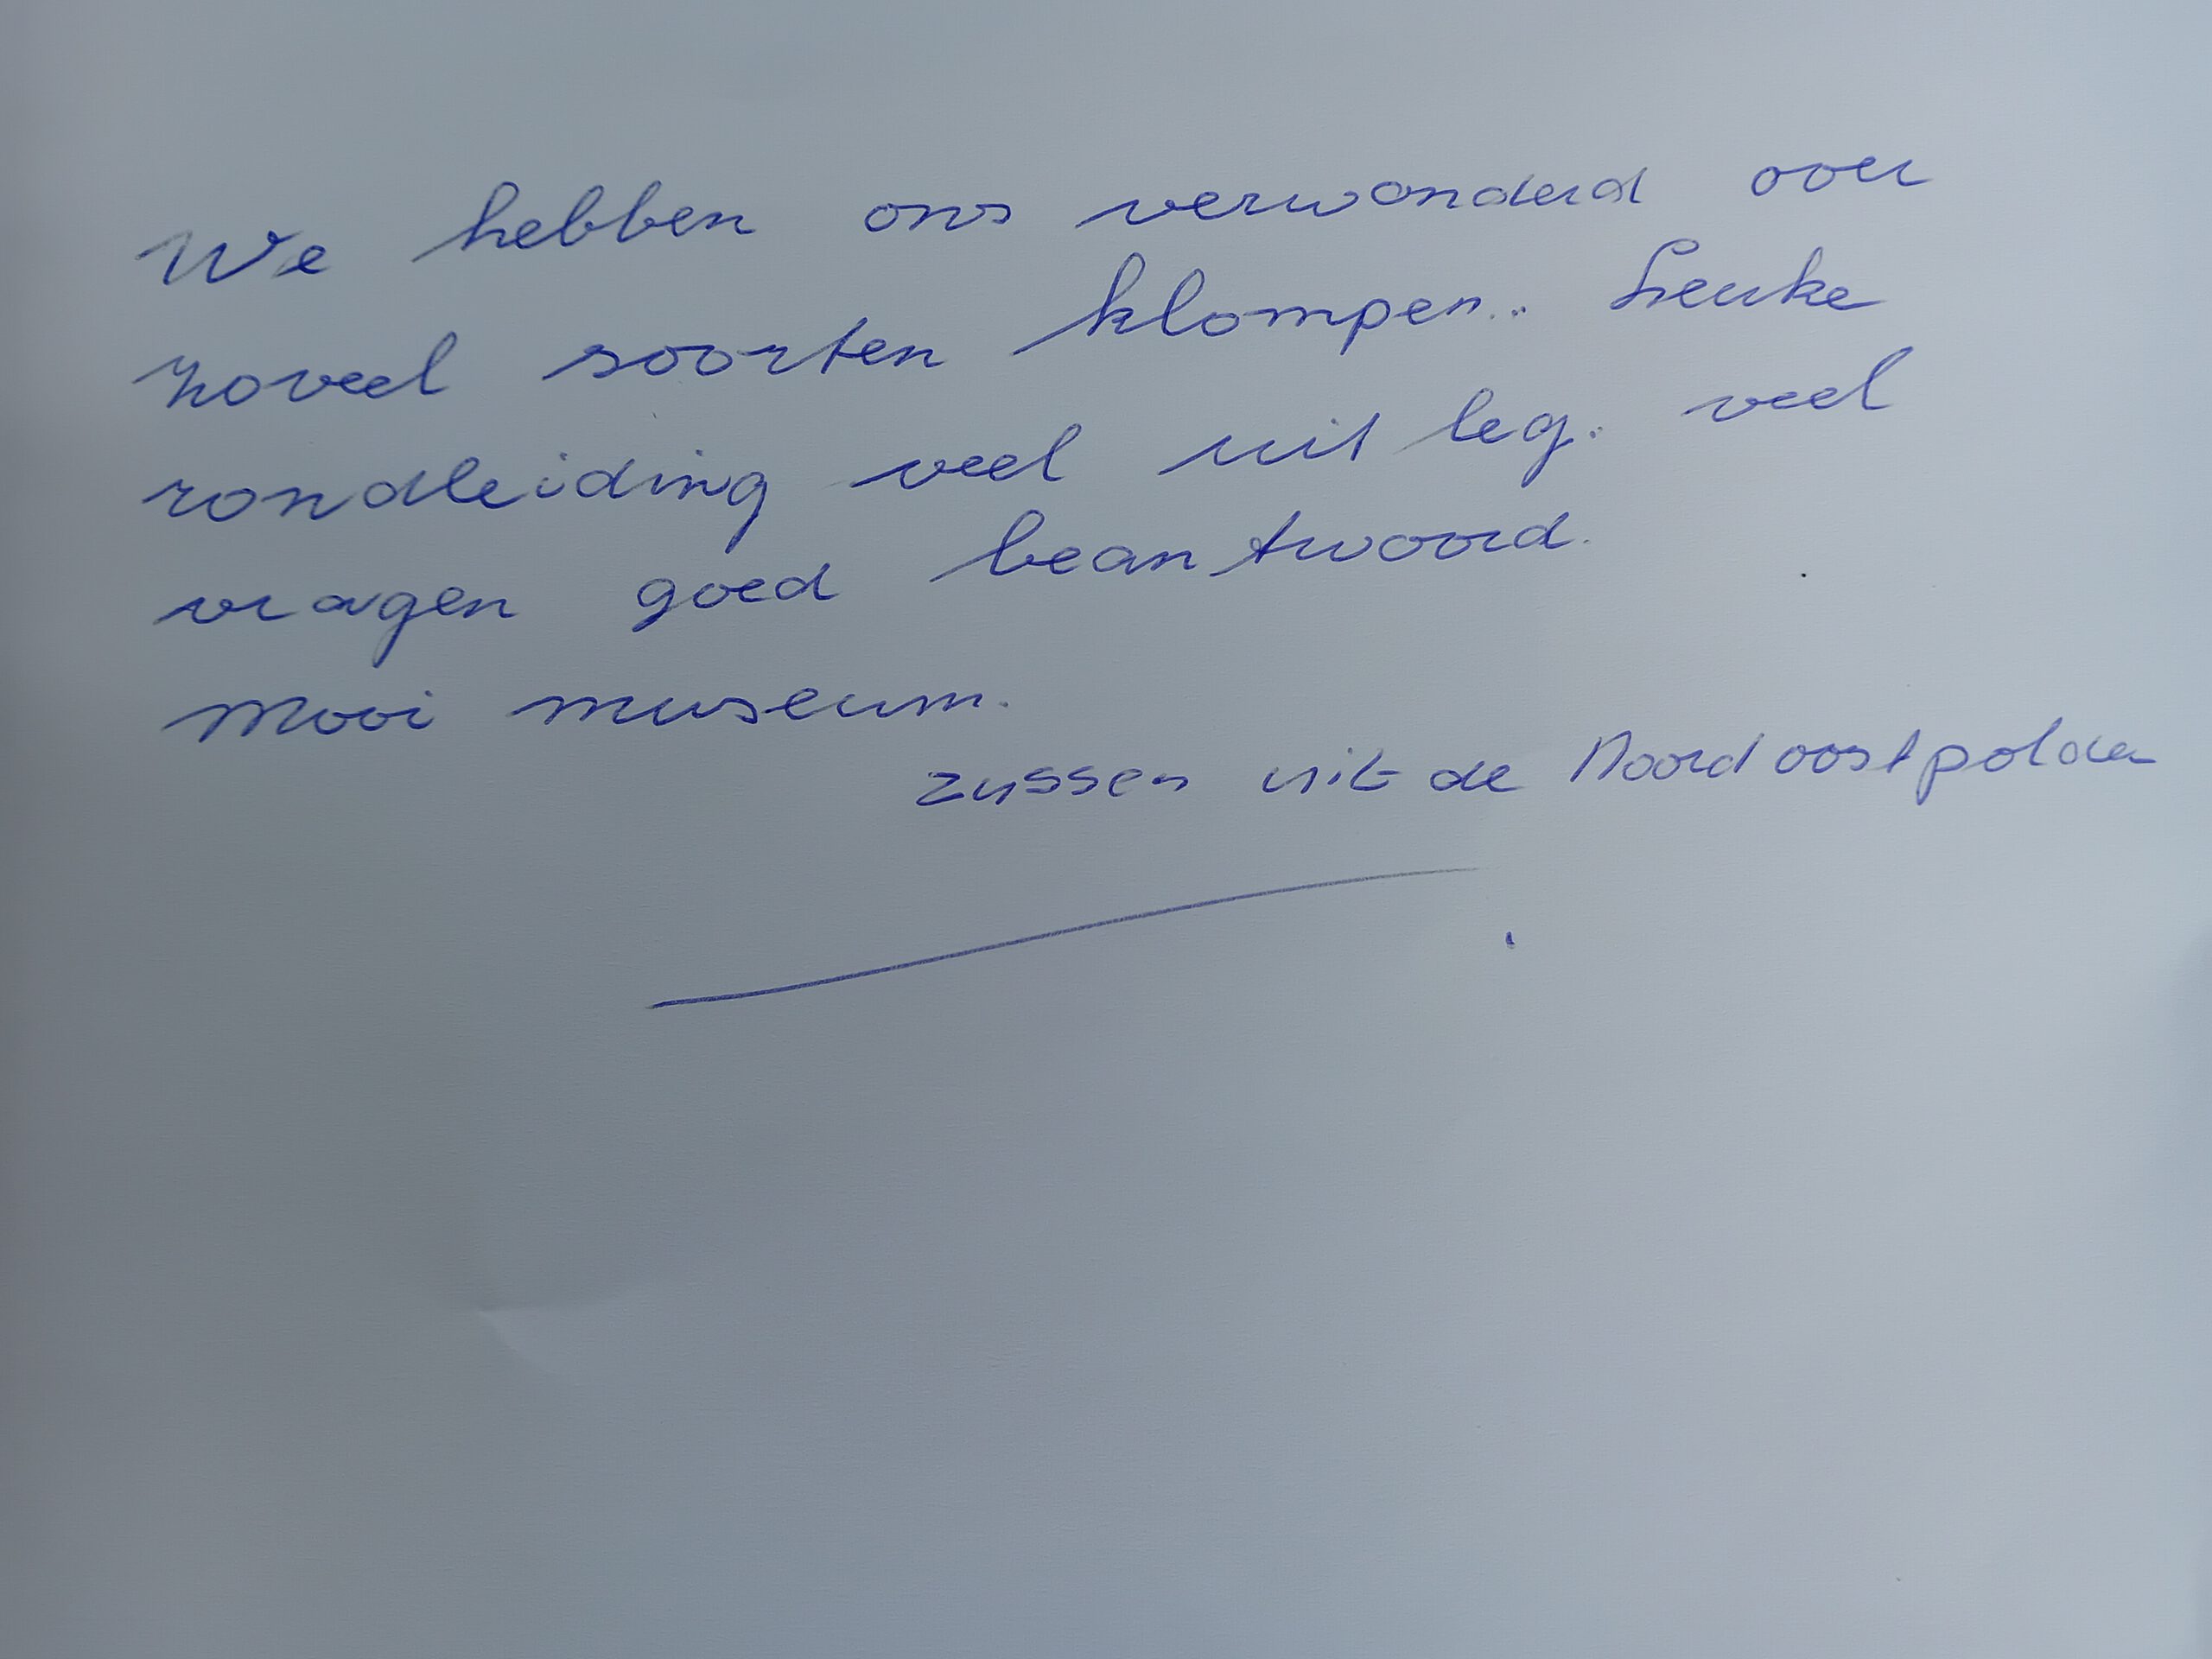 We hebben ons verwonderd over
zoveel soorten klompen.. Leuke
rondleiding veel uit leg. veel
vragen goed beantwoord.
Mooi museum.
zussen uit de Noordoostpolder